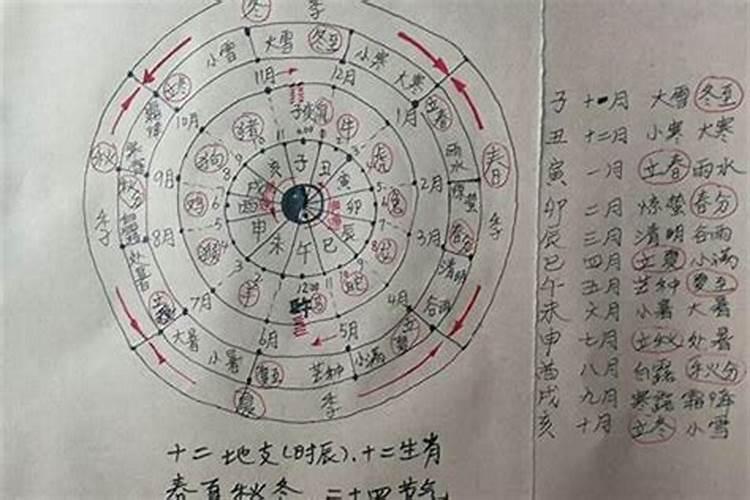 冬 季
小雪 大雪 冬至 小寒 大寒
立冬 11月 12月 1月 立春
10月 2月 雨水
秋 季 9月 惊蛰 春 季
秋分 8月 3月 春分
处暑 清明
7月 4月 谷雨
大暑 6月 5月 立夏
小暑 夏至 芒种 小满
夏 季
猪 鼠 牛 虎 兔
狗 鸡 猴 羊 马 蛇
子 丑 寅 卯 辰 巳 午 未 申 酉 戌 亥
12:00
子 十一月 大雪 冬至
丑 十二月 小寒 大寒
寅 一月 立春 雨水
卯 二月 惊蛰 春分
辰 三月 清明 谷雨
巳 四月 立夏 小满
午 五月 芒种 夏至
未 六月 小暑 大暑
申 七月 立秋 处暑
酉 八月 白露 秋分
戌 九月 寒露 霜降
亥 十月 立冬 小雪
十二地支(时辰)、十二生肖
春夏秋冬 二十四节气